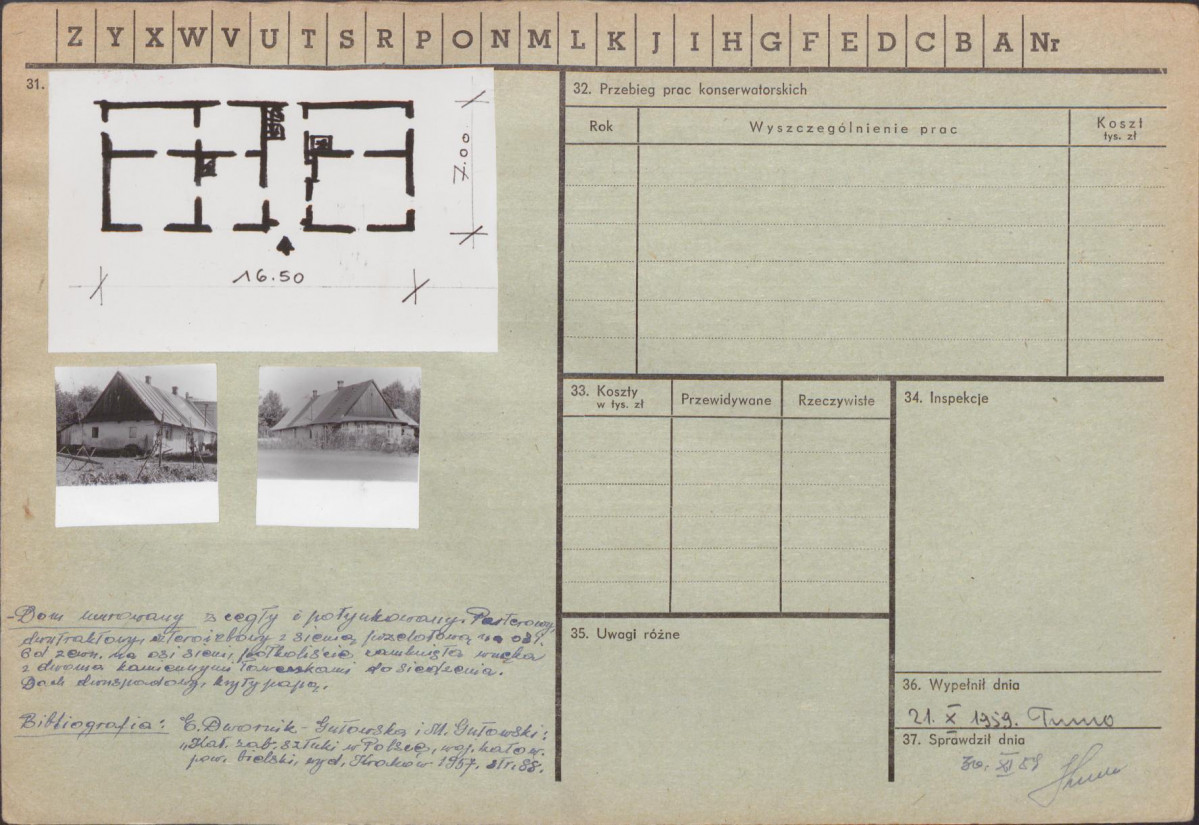 Z Y X W V U T S R P O N M L K J I H G F E D C B A Nr
31.
7.00
16.50
- Dom murowany z cegły i potynkowany. Parterowy,
dwutraktowy, z sienią przelotową na osi.
Od zewn. na osi sieni, półkoliście zamknięta wnęka
z dwoma kamiennymi ławeczkami do siedzenia.
Dach dwuspadowy, kryty papą.
Bibliografia: E. Dwornik-Gutowska i M. Gutowski:
„Kat. zab. sztuki w Polsce, woj. katow.
pow. bielski, wyd. Kraków 1957. str. 88.
32. Przebieg prac konserwatorskich
Rok
Wyszczególnienie prac
Koszt
tys. zł
33. Koszty
w tys. zł
Przewidywane
Rzeczywiste
34. Inspekcje
35. Uwagi różne
36. Wypełnił dnia
21. X 1959.
37. Sprawdził dnia
30. XI 59